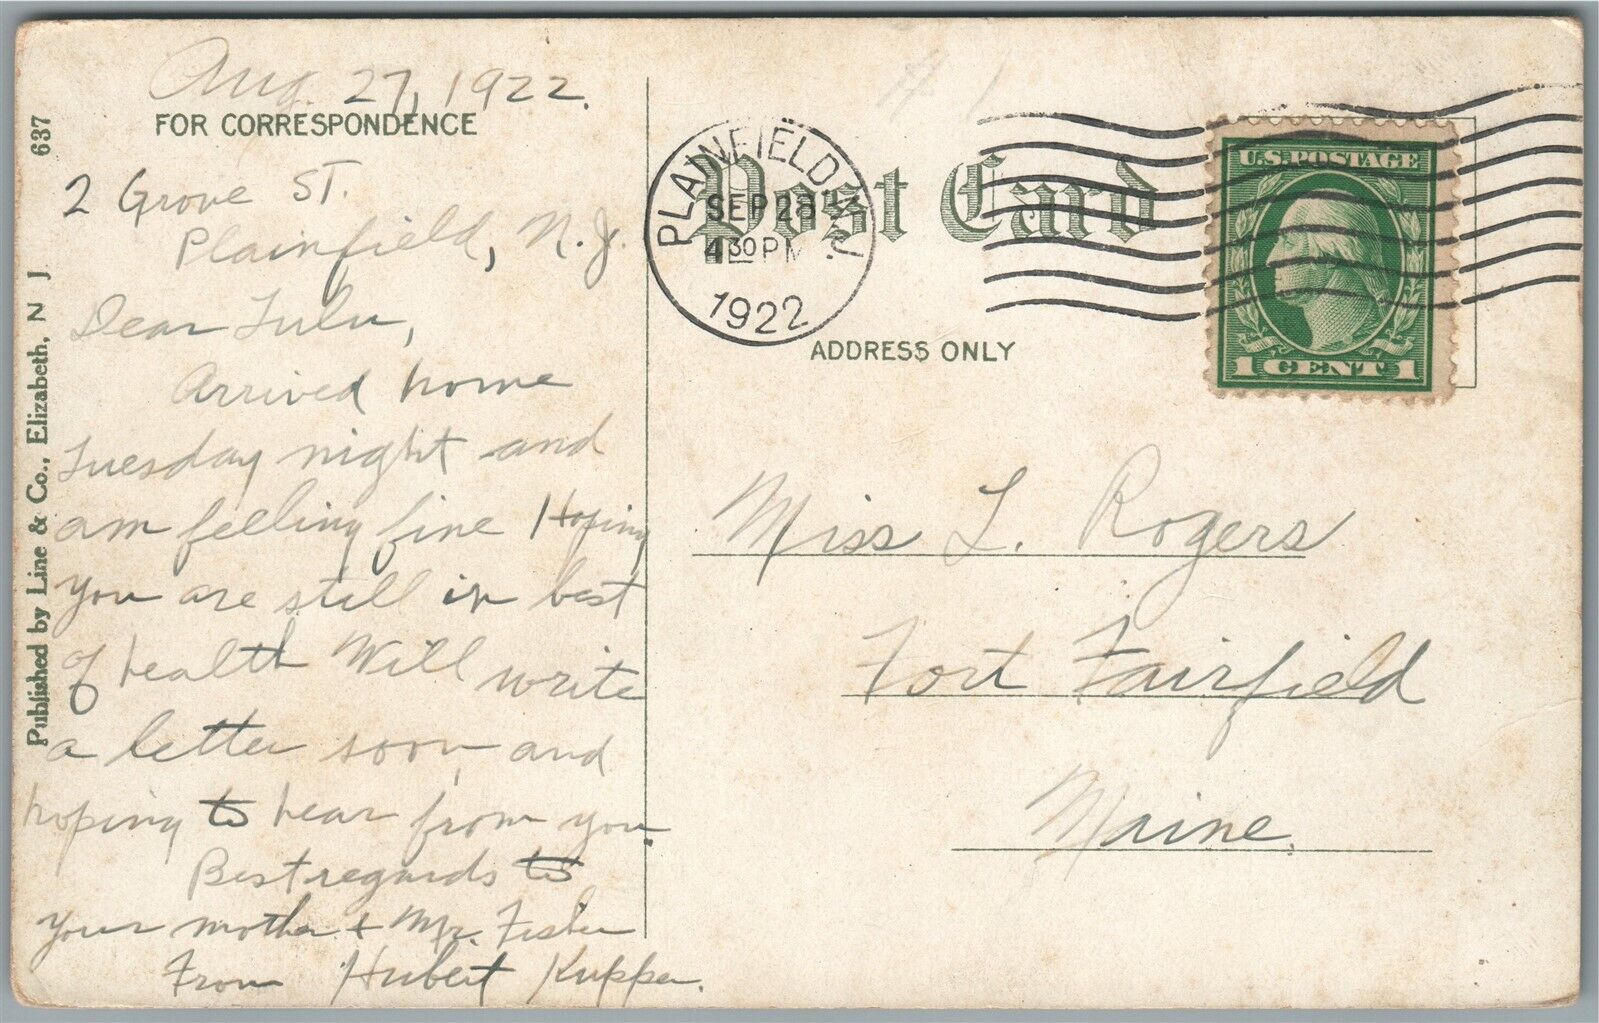 Aug. 27, 1922.
FOR CORRESPONDENCE
2 Grove St.
Plainfield, N.J.
Dear Lulu,
Arrived home
Tuesday night and
am feeling fine Hoping
you are still in best
of health Will write
a letter soon and
hoping to hear from you.
Best regards to
your mother + Mr. Fisher
From Hubert Kupper.
637
Published by Line & Co., Elizabeth, N J
Post Card
PLAINFIELD, N.J.
SEP 28
4 30 PM
1922
U.S. POSTAGE
1 CENT 1
ADDRESS ONLY
Miss L. Rogers
Fort Fairfield
Maine.